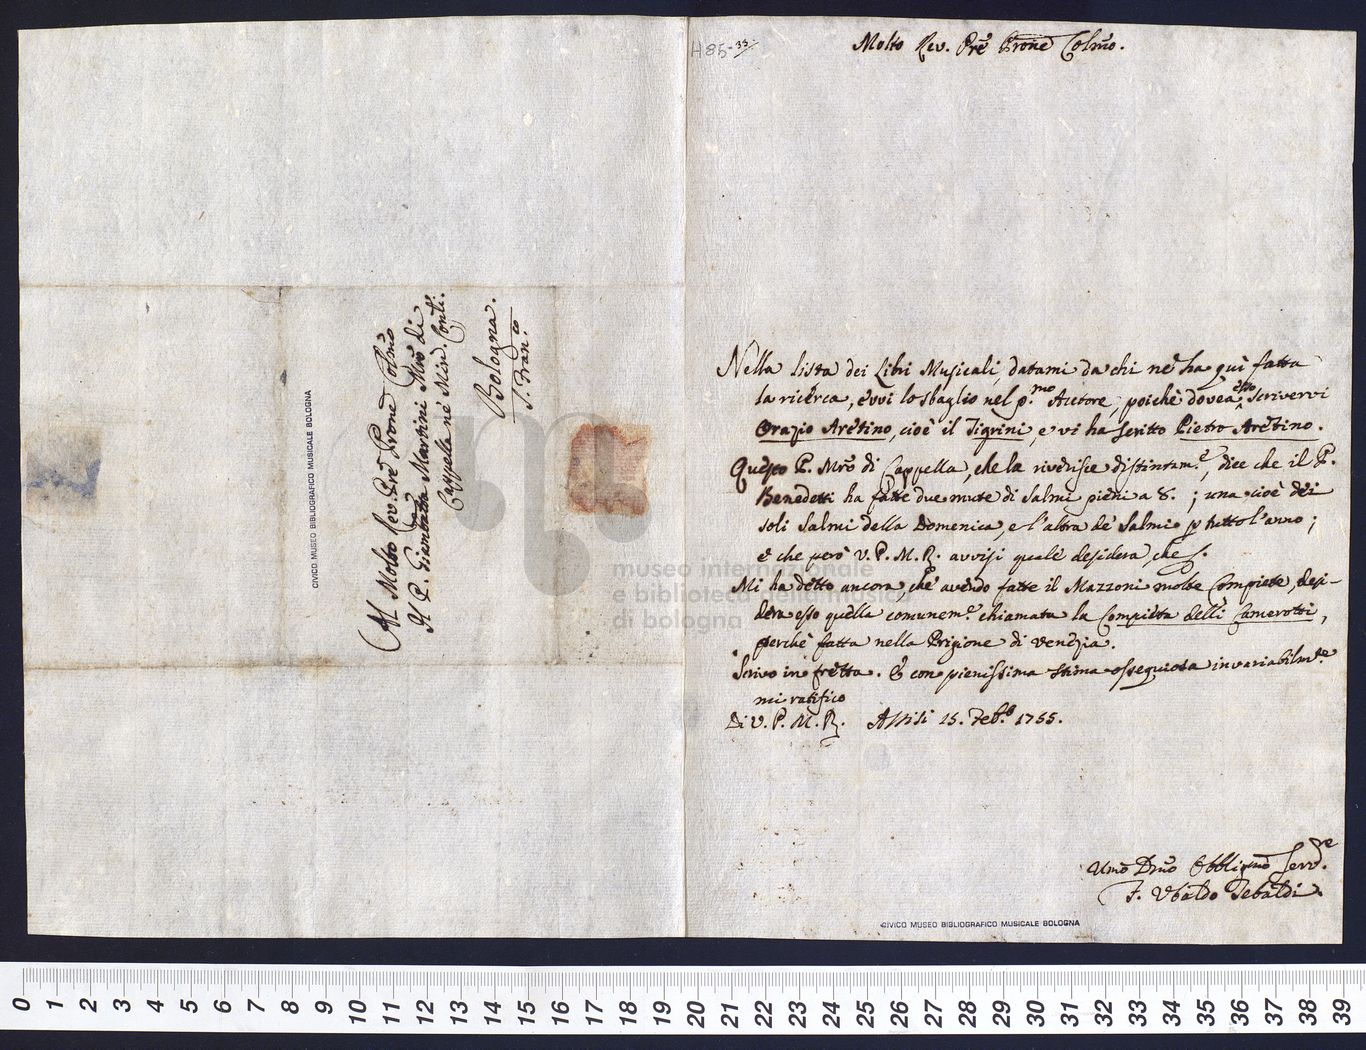 Al Molto Rev. Pre Prone Colmo
Il P. Giambata Martini Mro di
Cappella ne' Min. Conti.
Bologna.
S. Franco.
CIVICO MUSEO BIBLIOGRAFICO MUSICALE BOLOGNA
H85-35.
Molto Rev. Pre Prone Colmo.
Nella lista dei Libri Musicali, datami da chi ne ha quì fatta
la ricerca, evvi lo sbaglio nel p.mo Autore, poiche dovea esso scrivervi
Orazio Aretino, cioè il Tigrini, e vi ha scritto Pietro Aretino.
Questo P. Mro di Cappella, che la riverisce distintam.e, dice che il P.
Benedetti ha fatte due mute di Salmi pieni a 8.; una cioè dei
soli Salmi della Domenica, e l'altra de' Salmi p tutto l'anno;
e che però V. P. M. R. avvisi quale desidera, che
Mi ha detto ancora, che avendo fatte il Mazzoni molte Compiete, desi-
dera esso quella comunem.e chiamata la Compieta delli Camerotti,
perchè fatta nella Prigione di Venezia.
Scrivo in fretta. E con pienissima stima ossequiosa invariabilm.te
mi ratifico
Di V. P. M. R. Assisi 15. Feb.o 1755.
Umo Dmo Obbligmo Serv.re
F. Ubaldo Tebaldi.
CIVICO MUSEO BIBLIOGRAFICO MUSICALE BOLOGNA
museo internazionale
e biblioteca della musica
di bologna
0 1 2 3 4 5 6 7 8 9 10 11 12 13 14 15 16 17 18 19 20 21 22 23 24 25 26 27 28 29 30 31 32 33 34 35 36 37 38 39